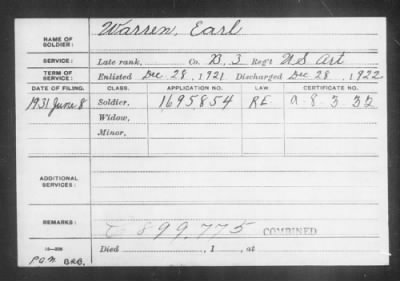 NAME OF SOLDIER: Warren, Earl
SERVICE: Late rank, Co. B, 3 Reg't U S Art
TERM OF SERVICE: Enlisted Dec 28, 1921 Discharged Dec 28, 1922
DATE OF FILING. CLASS. APPLICATION NO. LAW CERTIFICATE NO.
1931 June 8 Soldier, 1695854 RE a-8-3-32
Widow,
Minor,
ADDITIONAL SERVICES:
REMARKS: C 899.775 COMBINED
Died , 1 , at
PGM BRB.